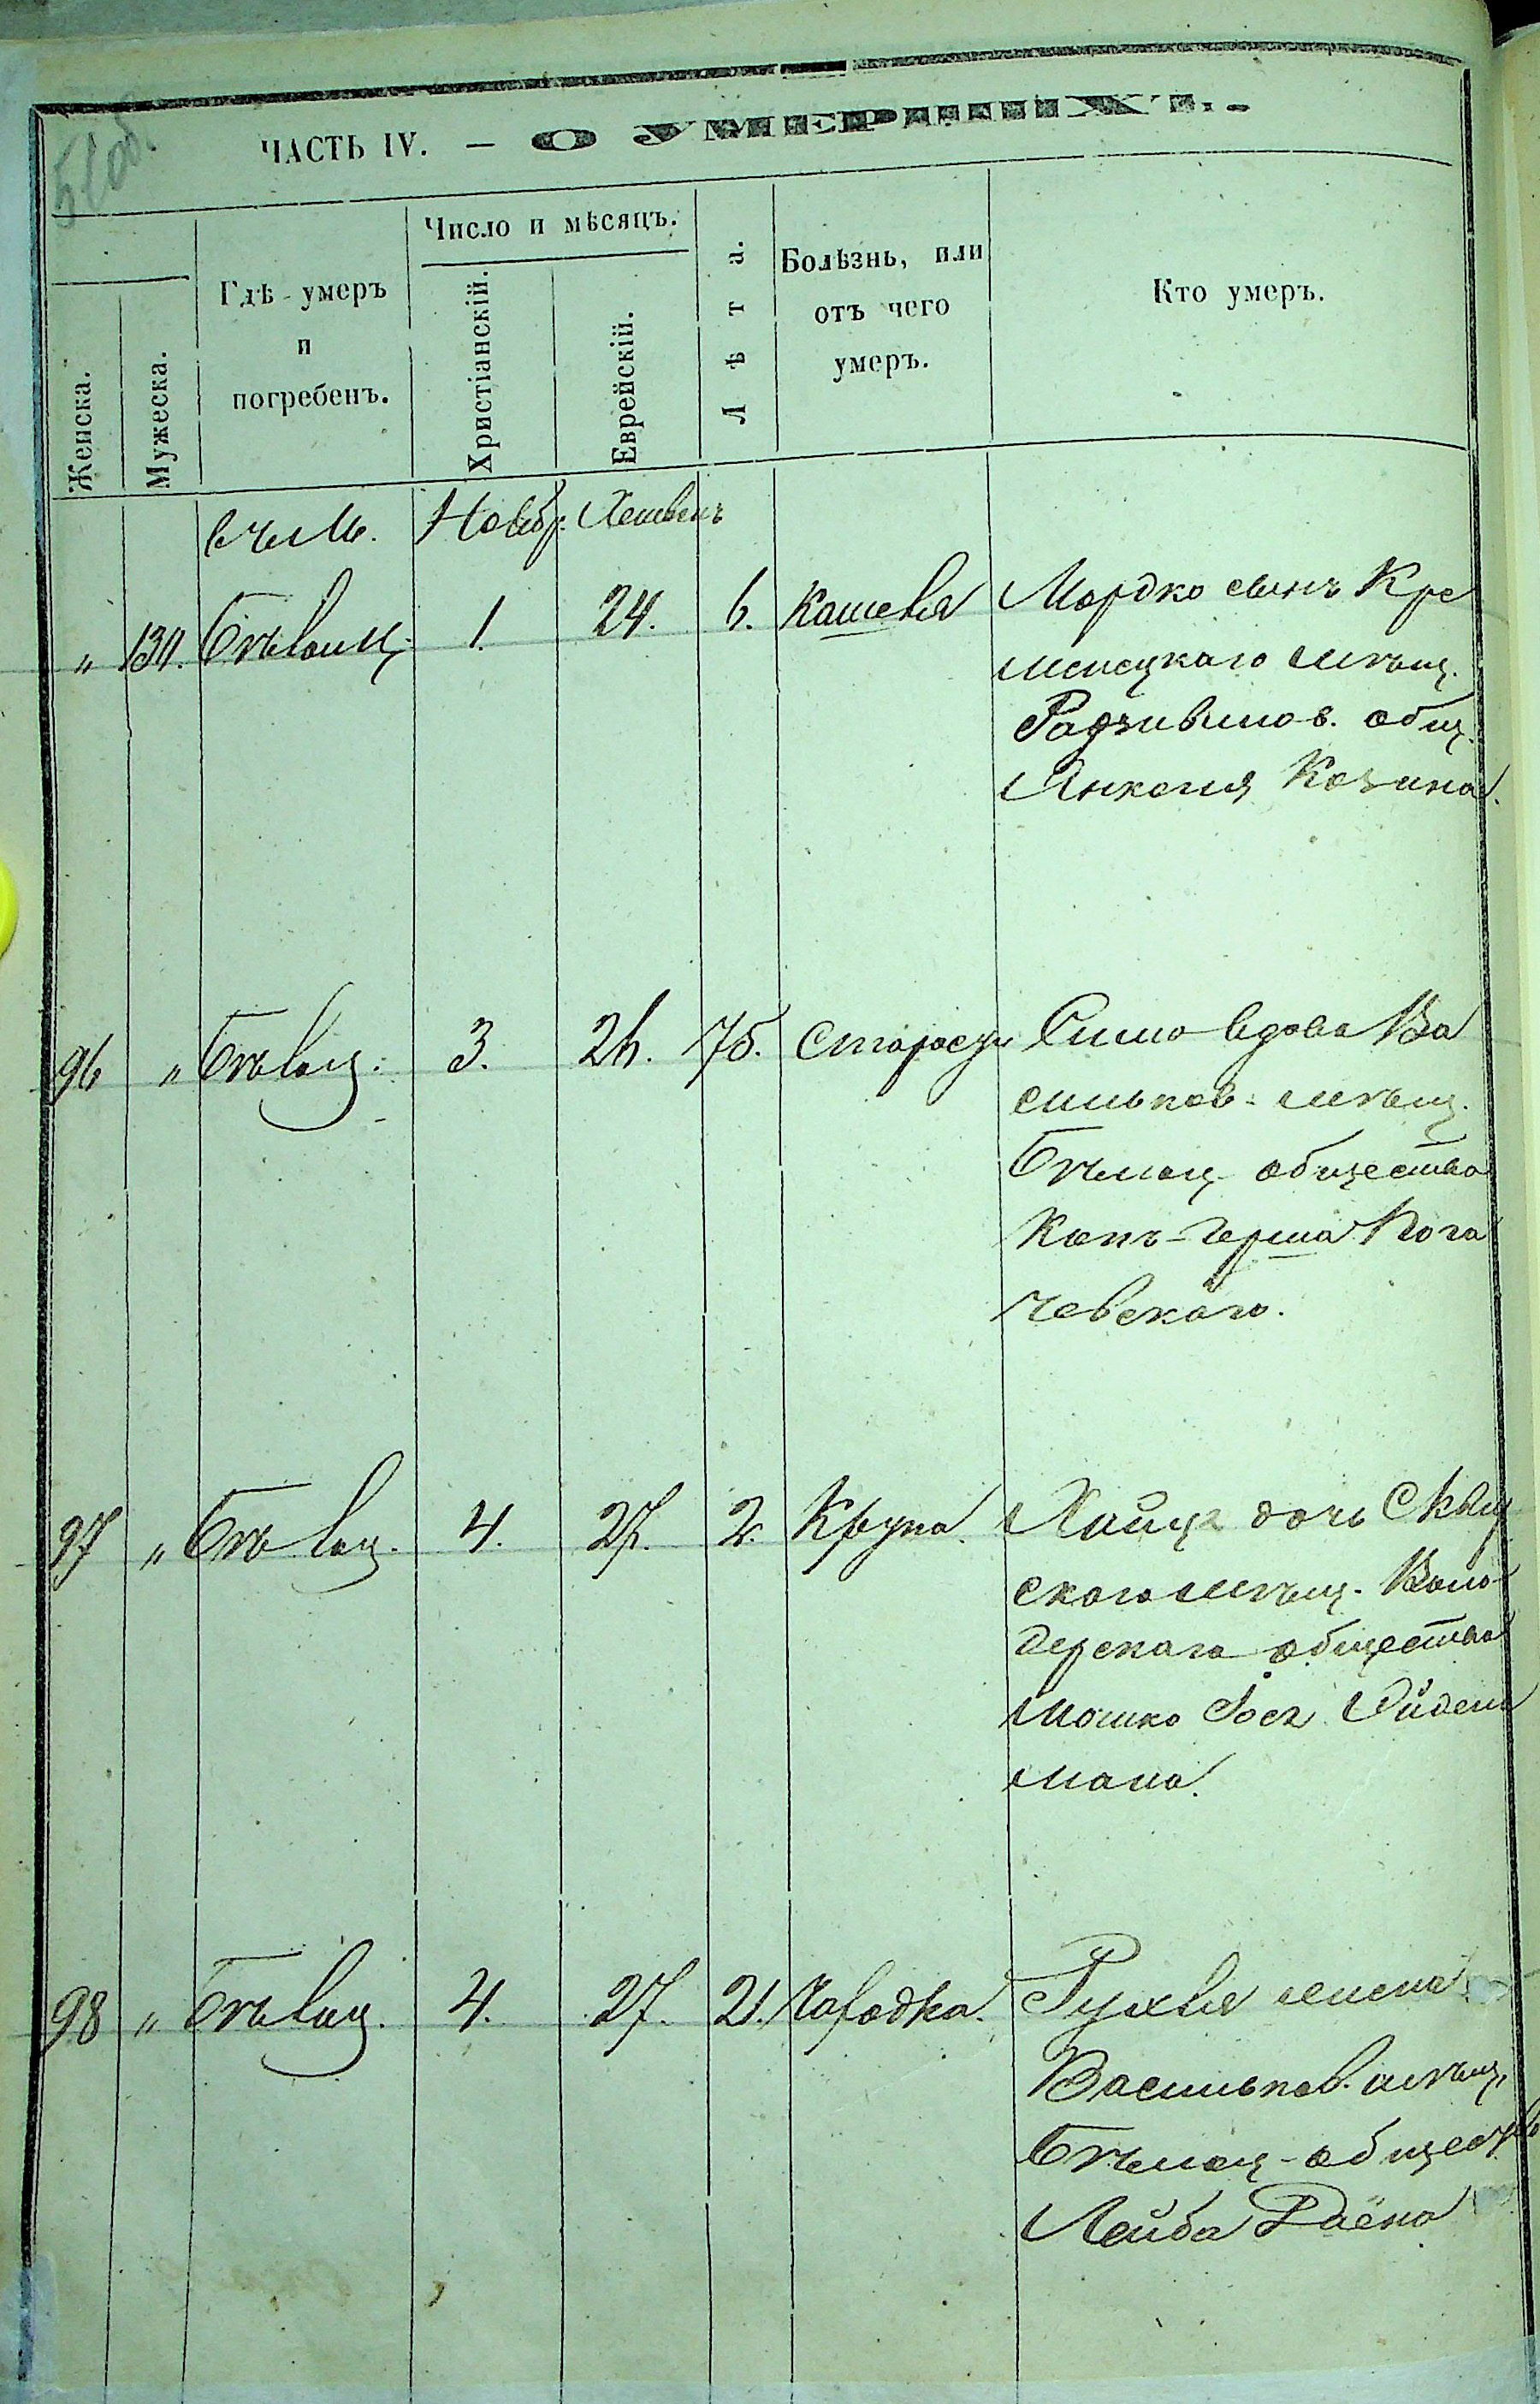 51об.
ЧАСТЬ IV. — О УМЕРШИХЪ.
Женска.
Мужеска.
Гдѣ умеръ
и
погребенъ.
Число и мѣсяцъ.
Христіанскій.
Еврейскій.
Лѣта.
Болѣзнь, или
отъ чего
умеръ.
Кто умеръ.
въ м. Ноябр. Хешвенъ
" 131. 1. 24. 6. Кашеля Мордко сынъ Кре
менецкаго мѣщ.
Радзивилов. общ.
Янкеля Козина.
96 " 3. 26. 75. Старости Сима вдова Ва
сильков. мѣщ.
Бѣлоц. общества
Гершa Пога
чевскаго.
97 " 4. 27. 2. Крупа. Хайця дочь Сквир
скаго мѣщ. Воло
дарскаго общества
Мошко Іося Эйдель
мана.
98 " 4. 27. 21. Рухля жена
Васильков. мѣщ.
Бѣлоц. обществ
Лейба